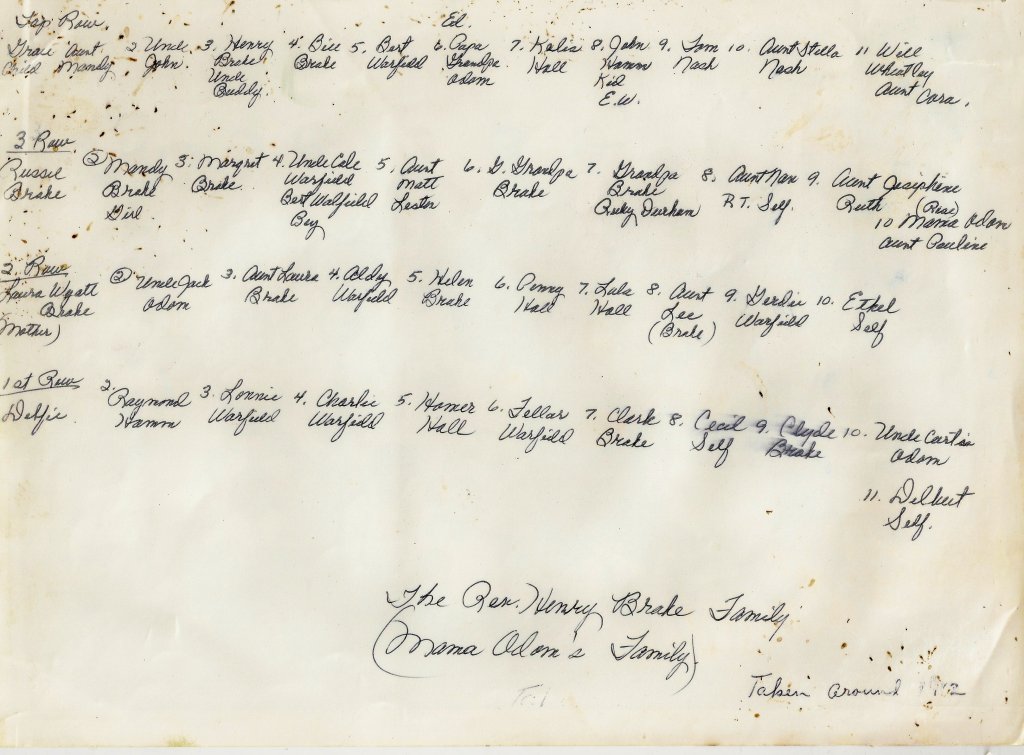 Top Row. Ed.
Grace Aunt 2 Uncle 3. Henry 4. Bill 5. Bert 6. Papa 7. Kalie 8. John 9. Tom 10. Aunt Stella 11 Will
Child Mandy John. Brake Brake Warfield Grandpa Hall Hamm Nash Nash Wheatley
Uncle Odom Kid Aunt Cora.
Buddy. E.W.
3 Row.
Russie 2 Mandy 3. Margret 4. Uncle Cale 5. Aunt 6. G. Grandpa 7. Grandpa 8. Aunt Nan 9. Aunt Josiphine
Brake Brake Brake Warfield Matt Brake Brake R.T. Self. Ruth
Girl Bert Walfield Lester Ruky Durham 10 Mama Odom
Boy Aunt Pauline
2. Row
Laura Wyatt 2 Uncle Jack 3. Aunt Laura 4. Aldy 5. Helen 6. Penny 7. Lula 8. Aunt 9. Gerdie 10. Ethel
Brake Odom Brake Warfield Brake Hall Hall Lee Warfield Self
Mother) (Brake)
1st Row
Delfie 2. Raymond 3. Lonnie 4. Charlie 5. Homer 6. Tellar 7. Clark 8. Cecil 9. Clyde 10. Uncle Curtis
Hamm Warfield Warfield Hall Warfield Brake Self Brake Odom
11. Delbert
Self.
The Rev. Henry Brake Family
(Mama Odom's Family)
Taken around